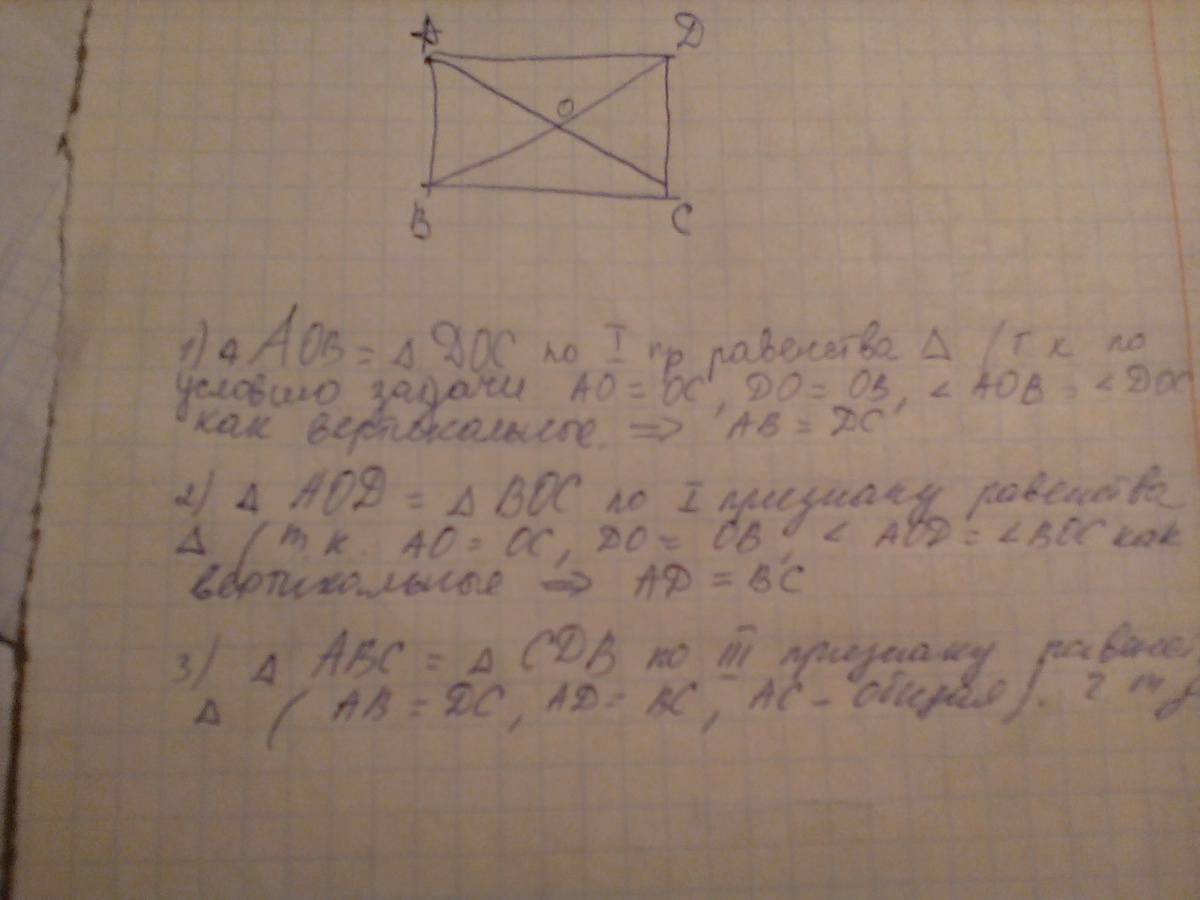 A D
O
B C
1) Δ AOB = Δ DOC по I пр равенства Δ (т к по
условию задачи AO = OC, DO = OB, < AOB = < DOC
как вертикальные. ⇒ AB = DC
2) Δ AOD = Δ BOC по I признаку равенства
Δ (т.к. AO = OC, DO = OB, < AOD = < BOC как
вертикальные ⇒ AD = BC
3) Δ ABC = Δ CDB по III признаку
Δ ( AB = DC, AD = BC, AC - общая). ч т д